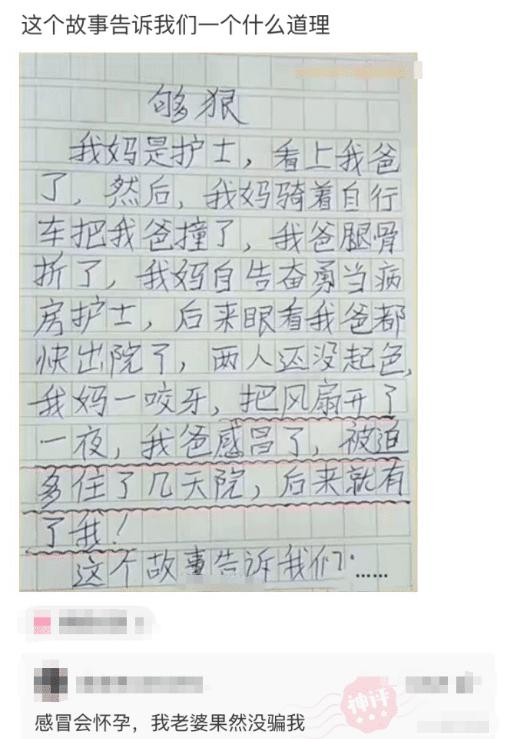 这个故事告诉我们一个什么道理
够狠
我妈是护士，看上我爸
了，然后，我妈骑着自行
车把我爸撞了，我爸腿骨
折了，我妈自告奋勇当病
房护士，后来眼看我爸都
快出院了，两人还没起色，
我妈一咬牙，把风扇开了
一夜，我爸感昌了，被迫
多住了几天院，后来就有
了我！
这个故事告诉我们……
神评
感冒会怀孕，我老婆果然没骗我